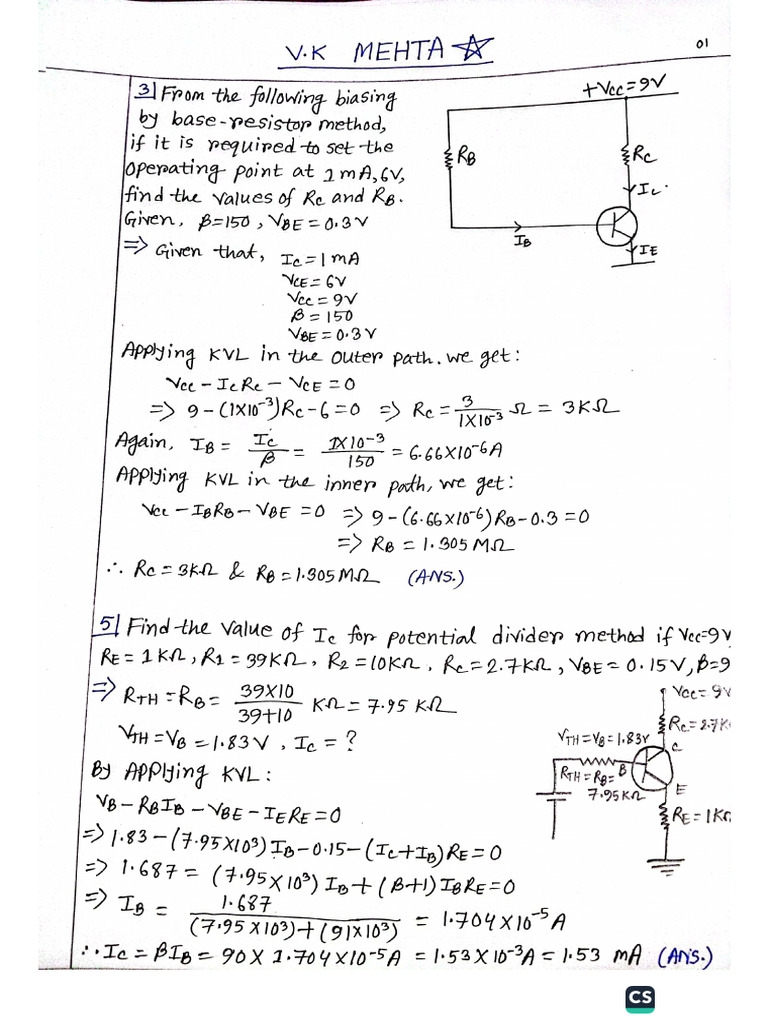 V.K MEHTA
01
3| From the following biasing
by base-resistor method,
if it is required to set the
operating point at 1mA, 6V,
find the values of Rc and RB.
Given, β=150, VBE=0.3V
+Vcc=9V
RB
RC
Ic.
IB
IE
=> Given that, Ic=1mA
VCE=6V
Vcc=9V
β=150
VBE=0.3V
Applying KVL in the outer path. we get:
Vcc-IcRc-VCE=0
=> 9-(1X10⁻³)Rc-6=0 => Rc=3/1X10⁻³ Ω = 3KΩ
Again, IB = Ic/β = 1X10⁻³/150 = 6.66X10⁻⁶A
Applying KVL in the inner path, we get:
Vcc-IBRB-VBE=0 => 9-(6.66X10⁻⁶)RB-0.3=0
=> RB=1.305MΩ
∴ Rc=3KΩ & RB=1.305MΩ (ANS.)
5| Find the value of Ic for potential divider method if Vcc=9V
RE=1KΩ, R1=39KΩ, R2=10KΩ, Rc=2.7KΩ, VBE=0.15V, β=9
=> RTH=RB= 39X10/39+10 KΩ=7.95 KΩ
VTH=VB=1.83V, Ic=?
Vcc=9V
Rc=2.7K
C
VTH=VB=1.83V
RTH=RB=
7.95KΩ
B
E
RE=1KΩ
By APPlying KVL:
VB-RBIB-VBE-IERE=0
=> 1.83-(7.95X10³)IB-0.15-(Ic+IB)RE=0
=> 1.687 = (7.95X10³)IB+(β+1)IBRE=0
=> IB = 1.687/(7.95X10³)+(91X10³) = 1.704X10⁻⁵A
∴ Ic=βIB=90X1.704X10⁻⁵A=1.53X10⁻³A=1.53 mA (ANS.)
CS